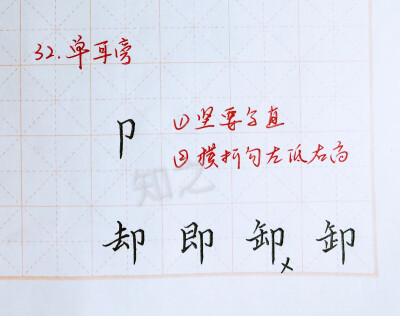 32.单耳旁
卩
(1)竖要写直
(2)横折勾左低右高
知之
却 即 卸× 卸